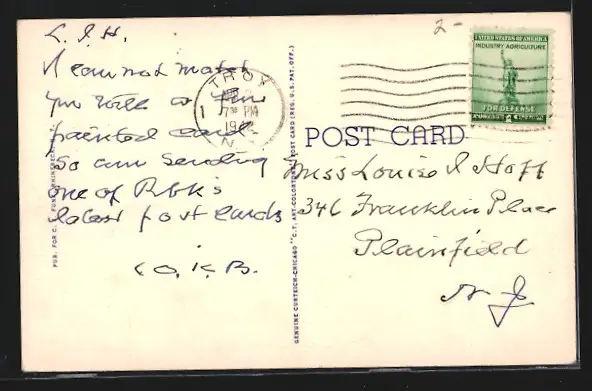 L. I. H.
I cannot match
you with a fine
painted card
So am sending
one of Rbk's
latest post cards
2-
TROY
7 30 PM
N.Y.
UNITED STATES OF AMERICA
INDUSTRY AGRICULTURE
FOR DEFENSE
POST CARD
Miss Louise I Hoff
346 Franklin Place
Plainfield
N J
GENUINE CURTEICH-CHICAGO "C.T. ART-COLORTONE" POST CARD (REG. U.S. PAT. OFF.)
PUB. FOR C.